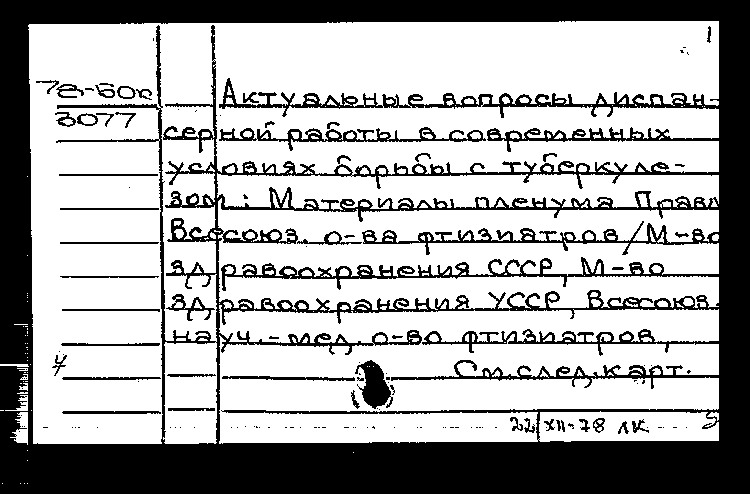 1
7в-60к
3077
Актуальные вопросы диспан-
серной работы в современных
условиях борьбы с туберкуле-
зом: Материалы пленума Правл
Всесоюз. о-ва фтизиатров/М-во
здравоохранения СССР, М-во
здравоохранения УССР, Всесоюз.
науч.-мед. о-во фтизиатров,
См. след. карт.
22/XII-78 ЛК